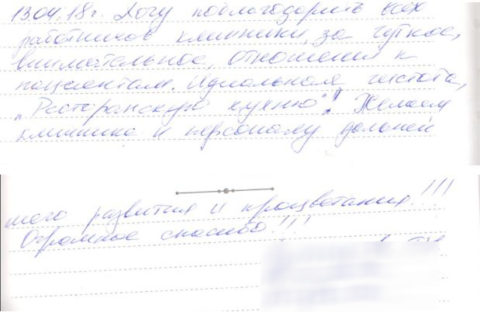 13.04.18г. Хочу поблагодарить всех
работников клиники, за чуткое,
внимательное, отношения к
пациентам. Идиальная чистота,
„Ресторанскую кухню“! Желаем
клинике и персоналу дальней
шего развития и процветания!!!
Огромное спасибо!!!